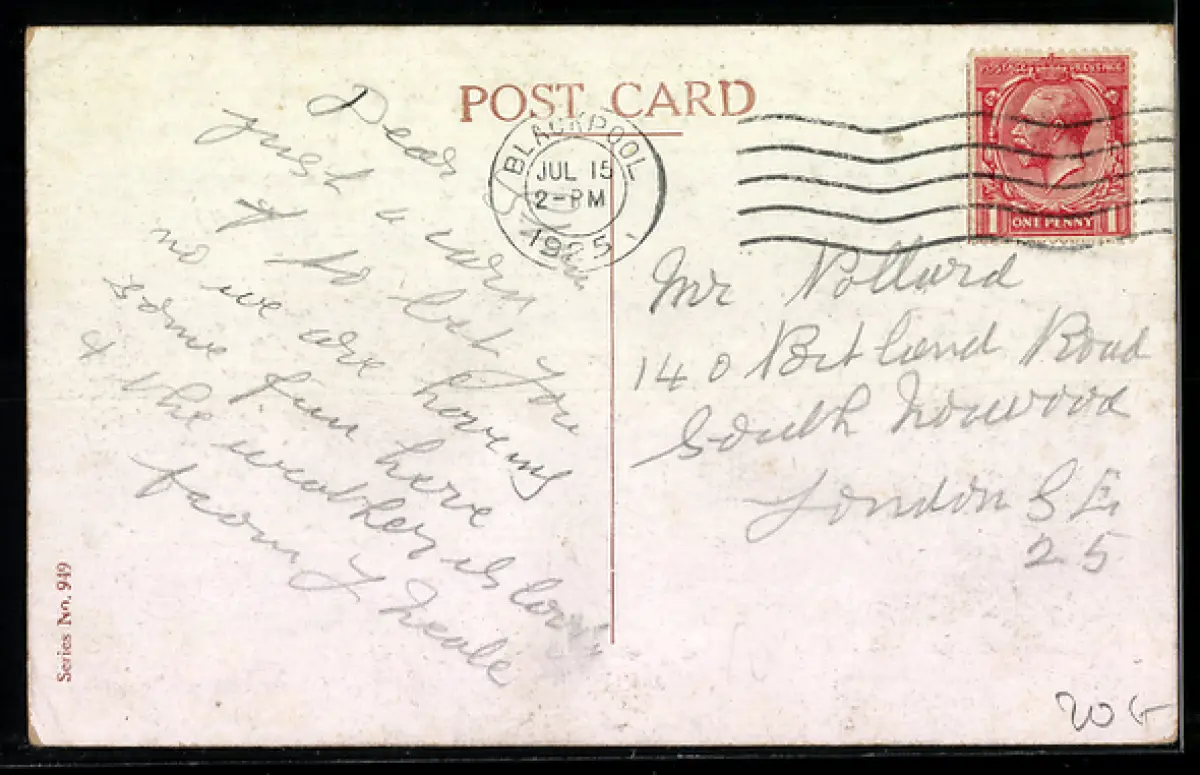 POST CARD
BLACKPOOL
JUL 15
2-PM
1925
POSTAGE REVENUE
1 ONE PENNY 1
Dear
just a
& to let you
no we are having
some fun here
& the weather is
from Neale
Mr Pollard
140 Road
South Norwood
London S E
25
Series No. 949